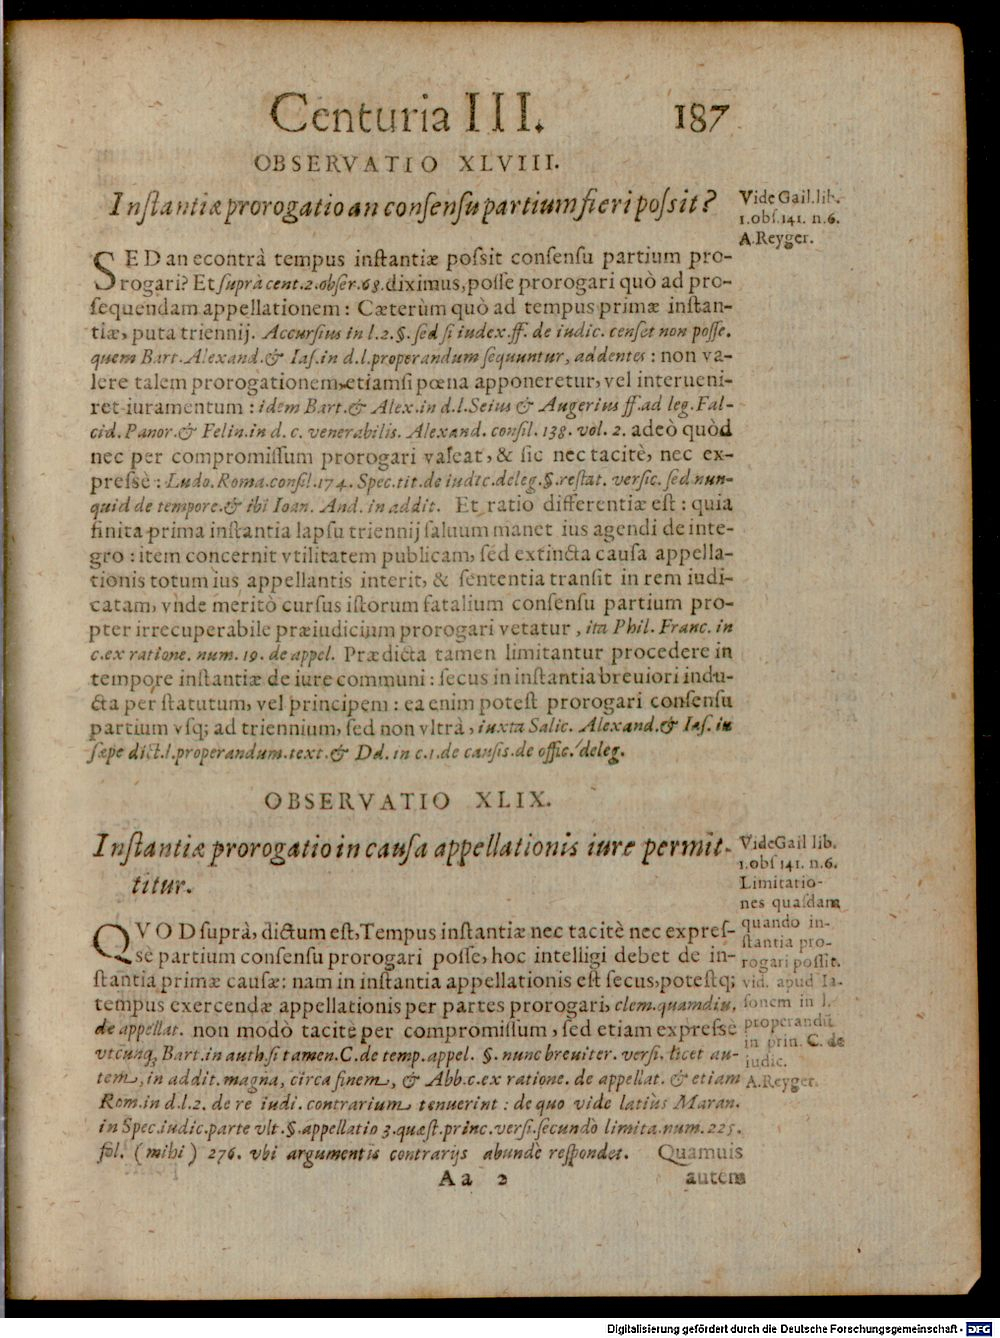 Centuria III. 187
OBSERVATIO XLVIII.
Inſtantiæ prorogatio an conſenſu partium fieri poſsit?
Vide Gail. lib.
1. obſ. 141. n. 6.
A. Reyger.
SED an econtrà tempus inſtantiæ poſſit conſenſu partium pro-
rogari? Et ſuprà cent. 2. obſer. 68. diximus, poſſe prorogari quò ad pro-
ſequendam appellationem: Cæterùm quò ad tempus primæ inſtan-
tiæ, puta triennij. Accurſius in l. 2. §. ſed ſi iudex. ff. de iudic. cenſet non poſſe.
quem Bart. Alexand. & Iaſ. in d. l. properandum ſequuntur, addentes: non va-
lere talem prorogationem, etiamſi pœna apponeretur, vel interueni-
ret iuramentum: idem Bart. & Alex. in d. l. Seius & Augerius ff. ad leg. Fal-
cid. Panor. & Felin. in d. c. venerabilis. Alexand. conſil. 138. vol. 2. adeò quòd
nec per compromiſſum prorogari valeat, & ſic nec tacitè, nec ex-
preſsè: Ludo. Roma. conſil. 174. Spec. tit. de iudic. deleg. §. reſtat. verſic. ſed nun-
quid de tempore. & ibi Ioan. And. in addit. Et ratio differentiæ eſt: quia
finita prima inſtantia lapſu triennij ſaluum manet ius agendi de inte-
gro: item concernit vtilitatem publicam, ſed extincta cauſa appella-
tionis totum ius appellantis interit, & ſententia tranſit in rem iudi-
catam, vnde meritò curſus iſtorum fatalium conſenſu partium pro-
pter irrecuperabile præiudicium prorogari vetatur, ita Phil. Franc. in
c. ex ratione. num. 19. de appel. Prædicta tamen limitantur procedere in
tempore inſtantiæ de iure communi: ſecus in inſtantia breuiori indu-
cta per ſtatutum, vel principem: ea enim poteſt prorogari conſenſu
partium vſq; ad triennium, ſed non vltrà, iuxta Salic. Alexand. & Iaſ. in
ſæpe dict. l. properandum. text. & Dd. in c. 1. de cauſis. de offic. deleg.
OBSERVATIO XLIX.
Inſtantiæ prorogatio in cauſa appellationis iure permit-
titur.
Vide Gail lib.
1. obſ 141. n. 6.
Limitatio-
nes quaſdam
quando in-
ſtantia pro-
rogari poſſit.
vid. apud Ia-
ſonem in l.
properandū
in prin. C. de
iudic.
A. Reyger.
QVOD ſuprà, dictum eſt, Tempus inſtantiæ nec tacitè nec expreſ-
sè partium conſenſu prorogari poſſe, hoc intelligi debet de in-
ſtantia primæ cauſæ: nam in inſtantia appellationis eſt ſecus, poteſtq;
tempus exercendæ appellationis per partes prorogari, clem. quamdiu.
de appellat. non modò tacitè per compromiſſum, ſed etiam expreſsè
vtcunq; Bart. in auth. ſi tamen. C. de temp. appel. §. nunc breuiter. verſi. licet au-
tem, in addit. magna, circa finem, & Abb. c. ex ratione. de appellat. & etiam
Rom. in d. l. 2. de re iudi. contrarium tenuerint: de quo vide latiùs Maran.
in Spec. iudic. parte vlt. §. appellatio 3. quæſt. princ. verſi. ſecundò limita. num. 225.
fol. (mihi) 276. vbi argumentis contrarijs abundè reſpondet. Quamuis
Aa 2 autem
Digitalisierung gefördert durch die Deutsche Forschungsgemeinschaft - DFG